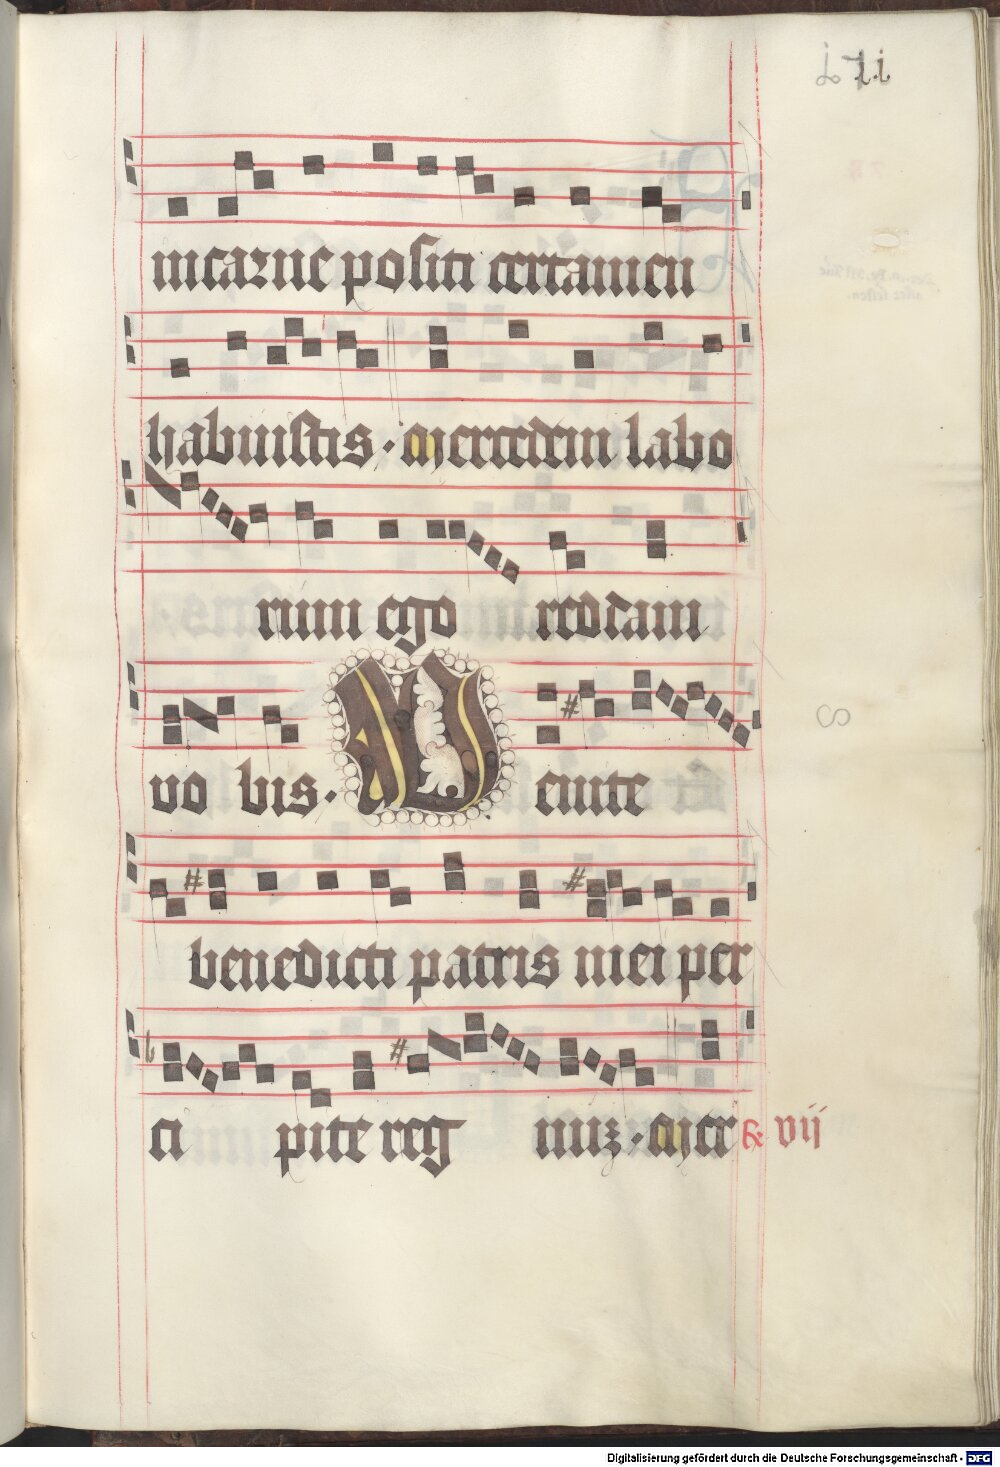 in carne positi certamen
habuistis · Mercedem labo
rum ego reddam
vo bis · Venite
benedicti patris mei per
ci pite regnuz · Mer ℟ vij
8
Digitalisierung gefördert durch die Deutsche Forschungsgemeinschaft - DFG